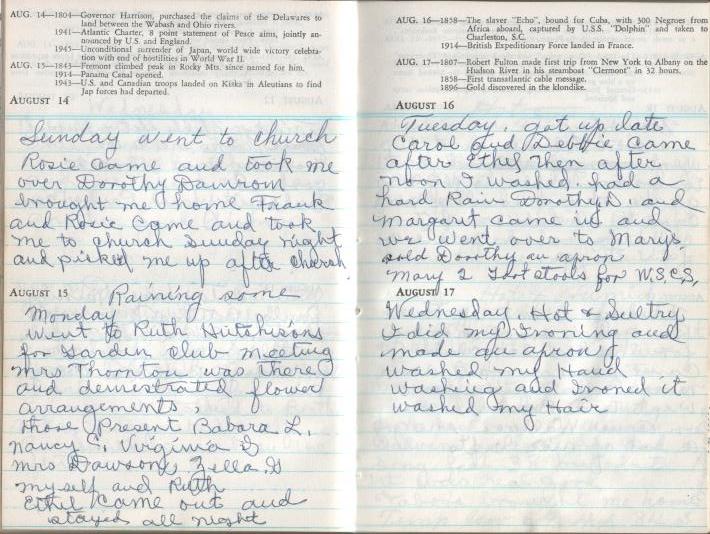 AUG. 14—1804—Governor Harrison, purchased the claims of the Delawares to
land between the Wabash and Ohio rivers.
1941—Atlantic Charter, 8 point statement of Peace aims, jointly an-
nounced by U.S. and England.
1945—Unconditional surrender of Japan, world wide victory celebra-
tion with end of hostilities in World War II.
AUG. 15—1843—Fremont climbed peak in Rocky Mts. since named for him.
1914—Panama Canal opened.
1943—U.S. and Canadian troops landed on Kiska in Aleutians to find
Jap forces had departed.
AUGUST 14
Sunday went to church
Rosie came and took me
over Dorothy Damrom
brought me home Frank
and Rosie Came and took
me to church Sunday night
and picked me up after church
AUGUST 15 Raining some
Monday
went to Ruth Hutchisons
for Garden club meeting
Mrs Thornton was there
and demistrated flower
arrangements,
those Present Babara L.
Nancy C. Virginia D
Mrs Dawson, Zella G
myself and Ruth
Ethel Came out and
stayed all night
AUG. 16—1858—The slaver "Echo", bound for Cuba, with 300 Negroes from
Africa aboard, captured by U.S.S. "Dolphin" and taken to
Charleston, S.C.
1914—British Expeditionary Force landed in France.
AUG. 17—1807—Robert Fulton made first trip from New York to Albany on the
Hudson River in his steamboat "Clermont" in 32 hours.
1858—First transatlantic cable message.
1896—Gold discovered in the klondike.
AUGUST 16
Tuesday, got up late
Carol and Debbie came
after Ethel Then after
noon I washed, had a
hard Rain Dorothy D. and
Margaret came in and
we went over to Marys
sold Dorothy an apron
Mary 2 Foot stools for W.S.C.S,
AUGUST 17
Wednesday, Hot & Sultry
I did my Ironing and
made an apron
washed my Hand
washing and Ironed it
washed my Hair